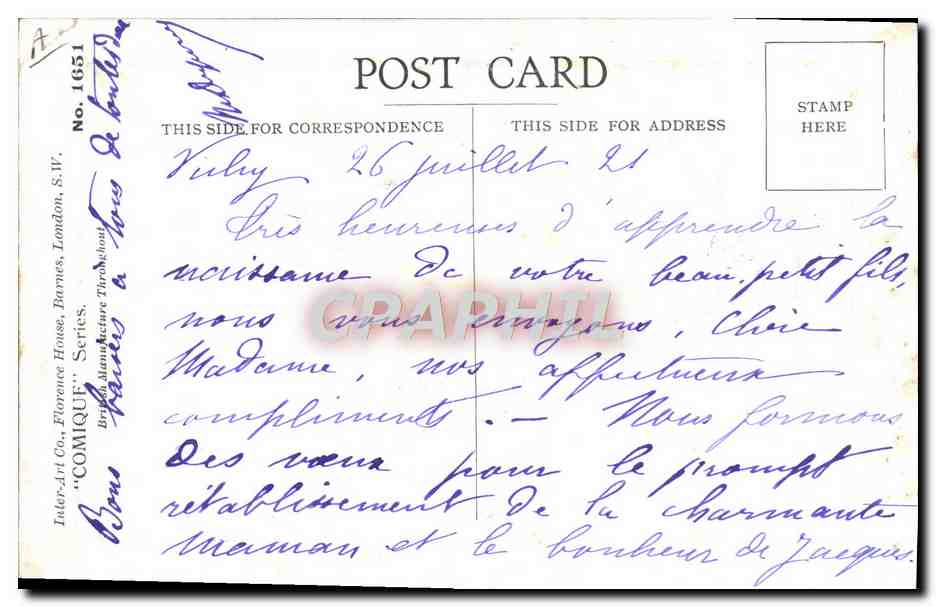 POST CARD
THIS SIDE FOR CORRESPONDENCE
THIS SIDE FOR ADDRESS
STAMP
HERE
Vichy 26 juillet 21
Très heureuses d'apprendre la
naissance de votre beau petit fils,
nous vous envoyons, chère
Madame, nos affectueux
compliments. — Nous formons
des vœux pour le prompt
rétablissement de la charmante
maman et le bonheur de Jacques.
Bons baisers à tous de toutes deux
Inter-Art Co., Florence House, Barnes, London, S.W.
"COMIQUE" Series.
No. 1651
British Manufacture Throughout
CPAPHIL